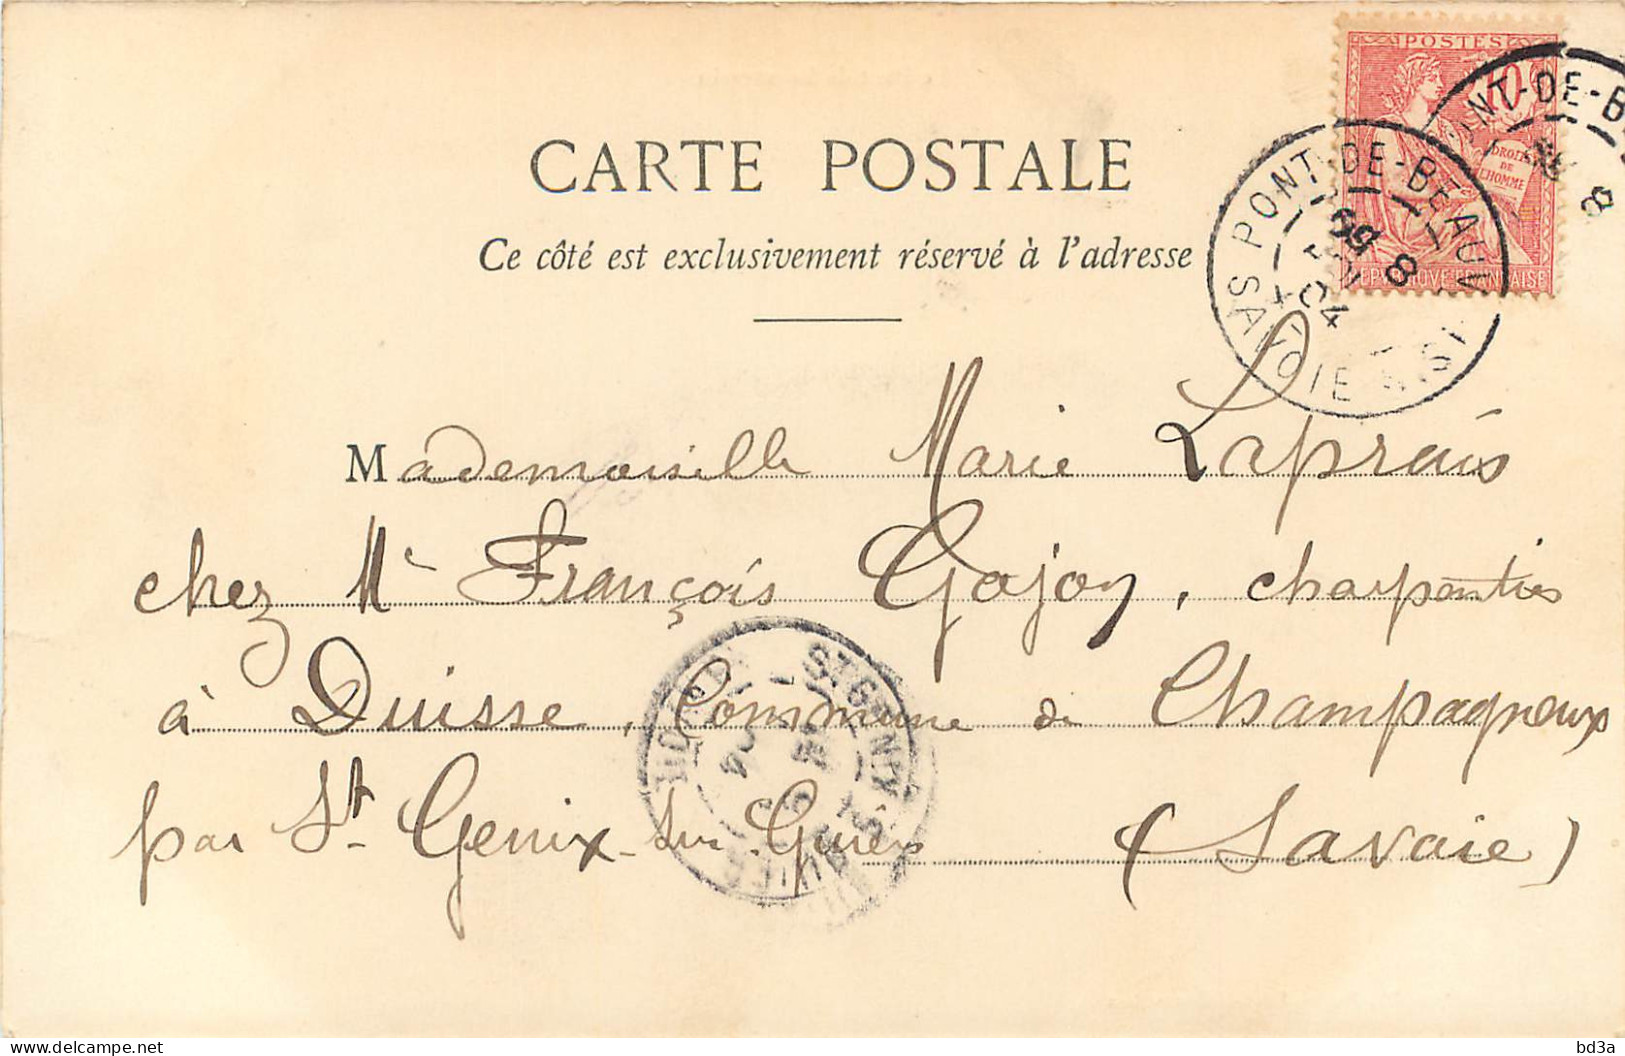 POSTES
10
DROITS
DE
L'HOMME
PONT-DE-B
8
PONT-DE-BEAUV
SAVOIE
04
8
CARTE POSTALE
Ce côté est exclusivement réservé à l'adresse
Mademoiselle Marie Laprais
chez Mr François Gojon, charpentier
à Duisse, Commune de Champagneux
par St Genix-sur-Guiers (Savoie)
bd3a